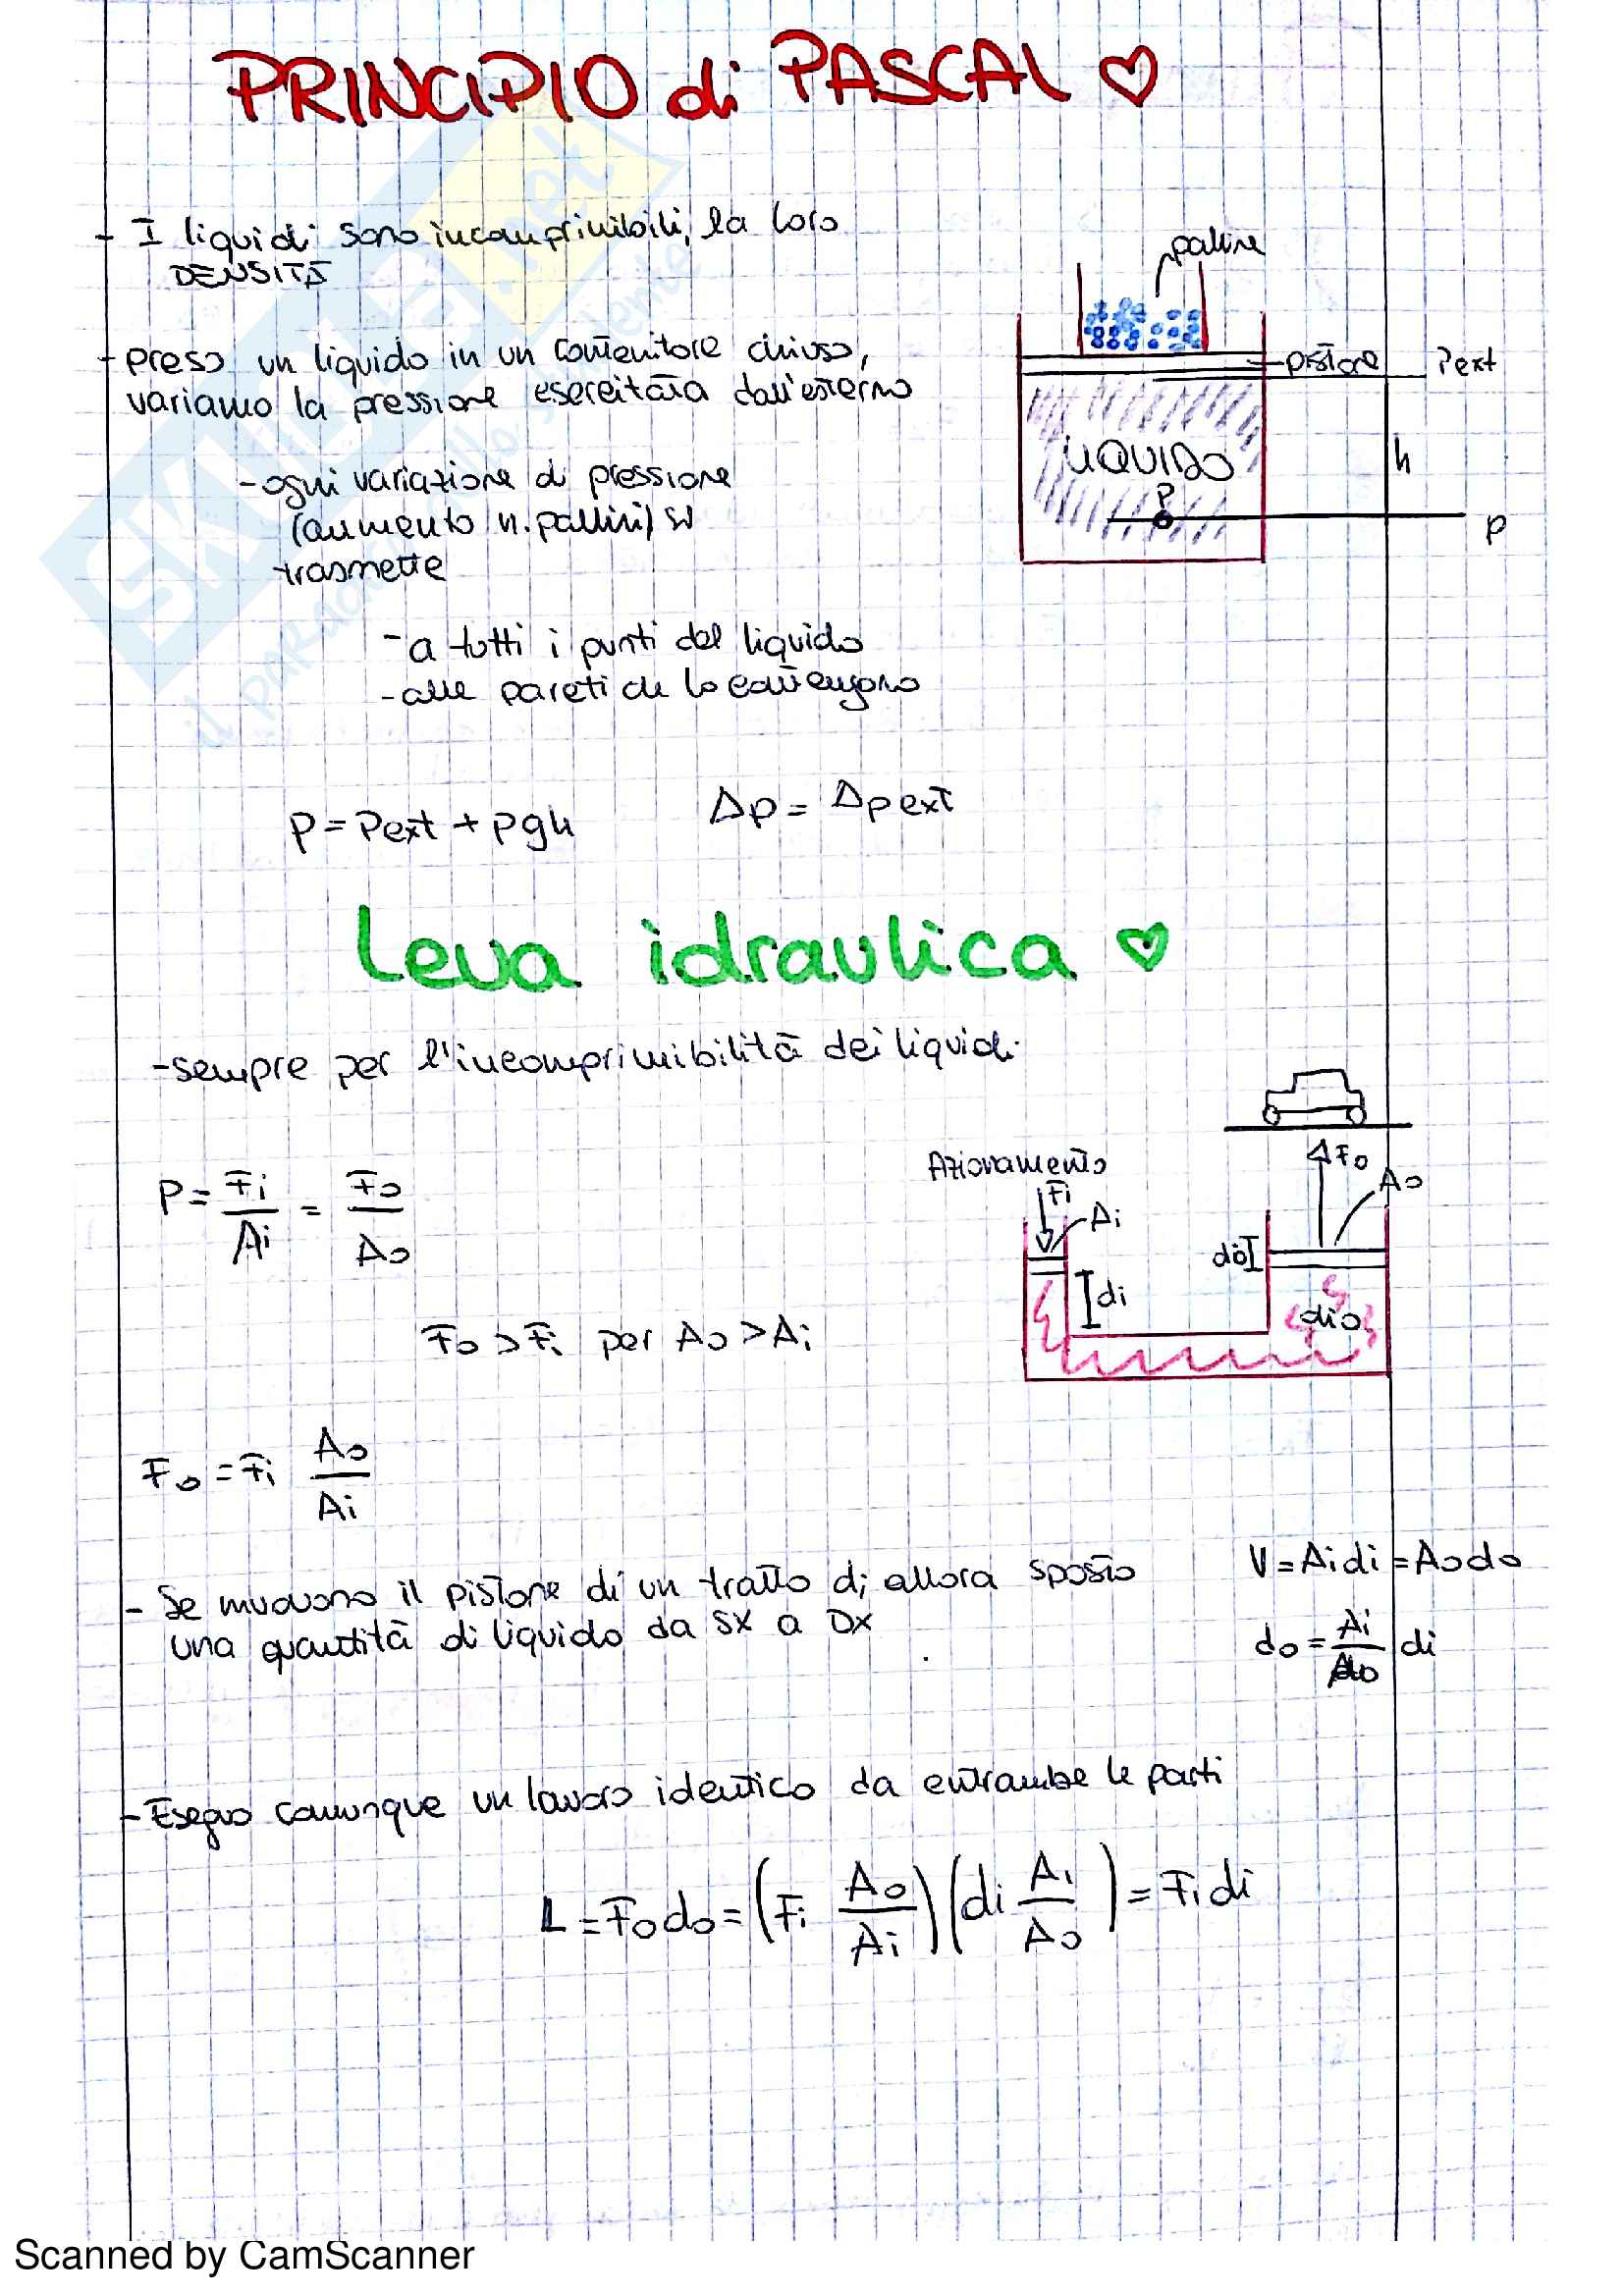 PRINCIPIO di PASCAL ♡
- I liquidi sono incomprimibili, la loro
DENSITÀ
- preso un liquido in un contenitore chiuso,
variamo la pressione esercitata dall'esterno
- ogni variazione di pressione
(aumento n. pallini) si
trasmette
- a tutti i punti del liquido
- alle pareti che lo contengono
palline
pistone
Pext
LIQUIDO
h
P
p
p = Pext + ρgh
Δp = Δp ext
Leva idraulica ♡
- sempre per l'incomprimibilità dei liquidi
P = Fi/Ai = Fo/Ao
Azionamento
Fi
Ai
di
Fo
Ao
do
olio
Fo > Fi per Ao > Ai
Fo = Fi Ao/Ai
- Se muovono il pistone di un tratto di allora sposto
una quantità di liquido da sx a Dx
V = Aidi = Aodo
do = Ai/Ao di
- Eseguo comunque un lavoro identico da entrambe le parti
L = Fodo = (Fi Ao/Ai)(di Ai/Ao) = Fidi
SKUOLA.net
Scanned by CamScanner